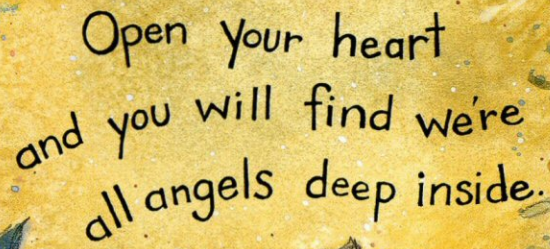 Open your heart
and you will find we're
all angels deep inside.